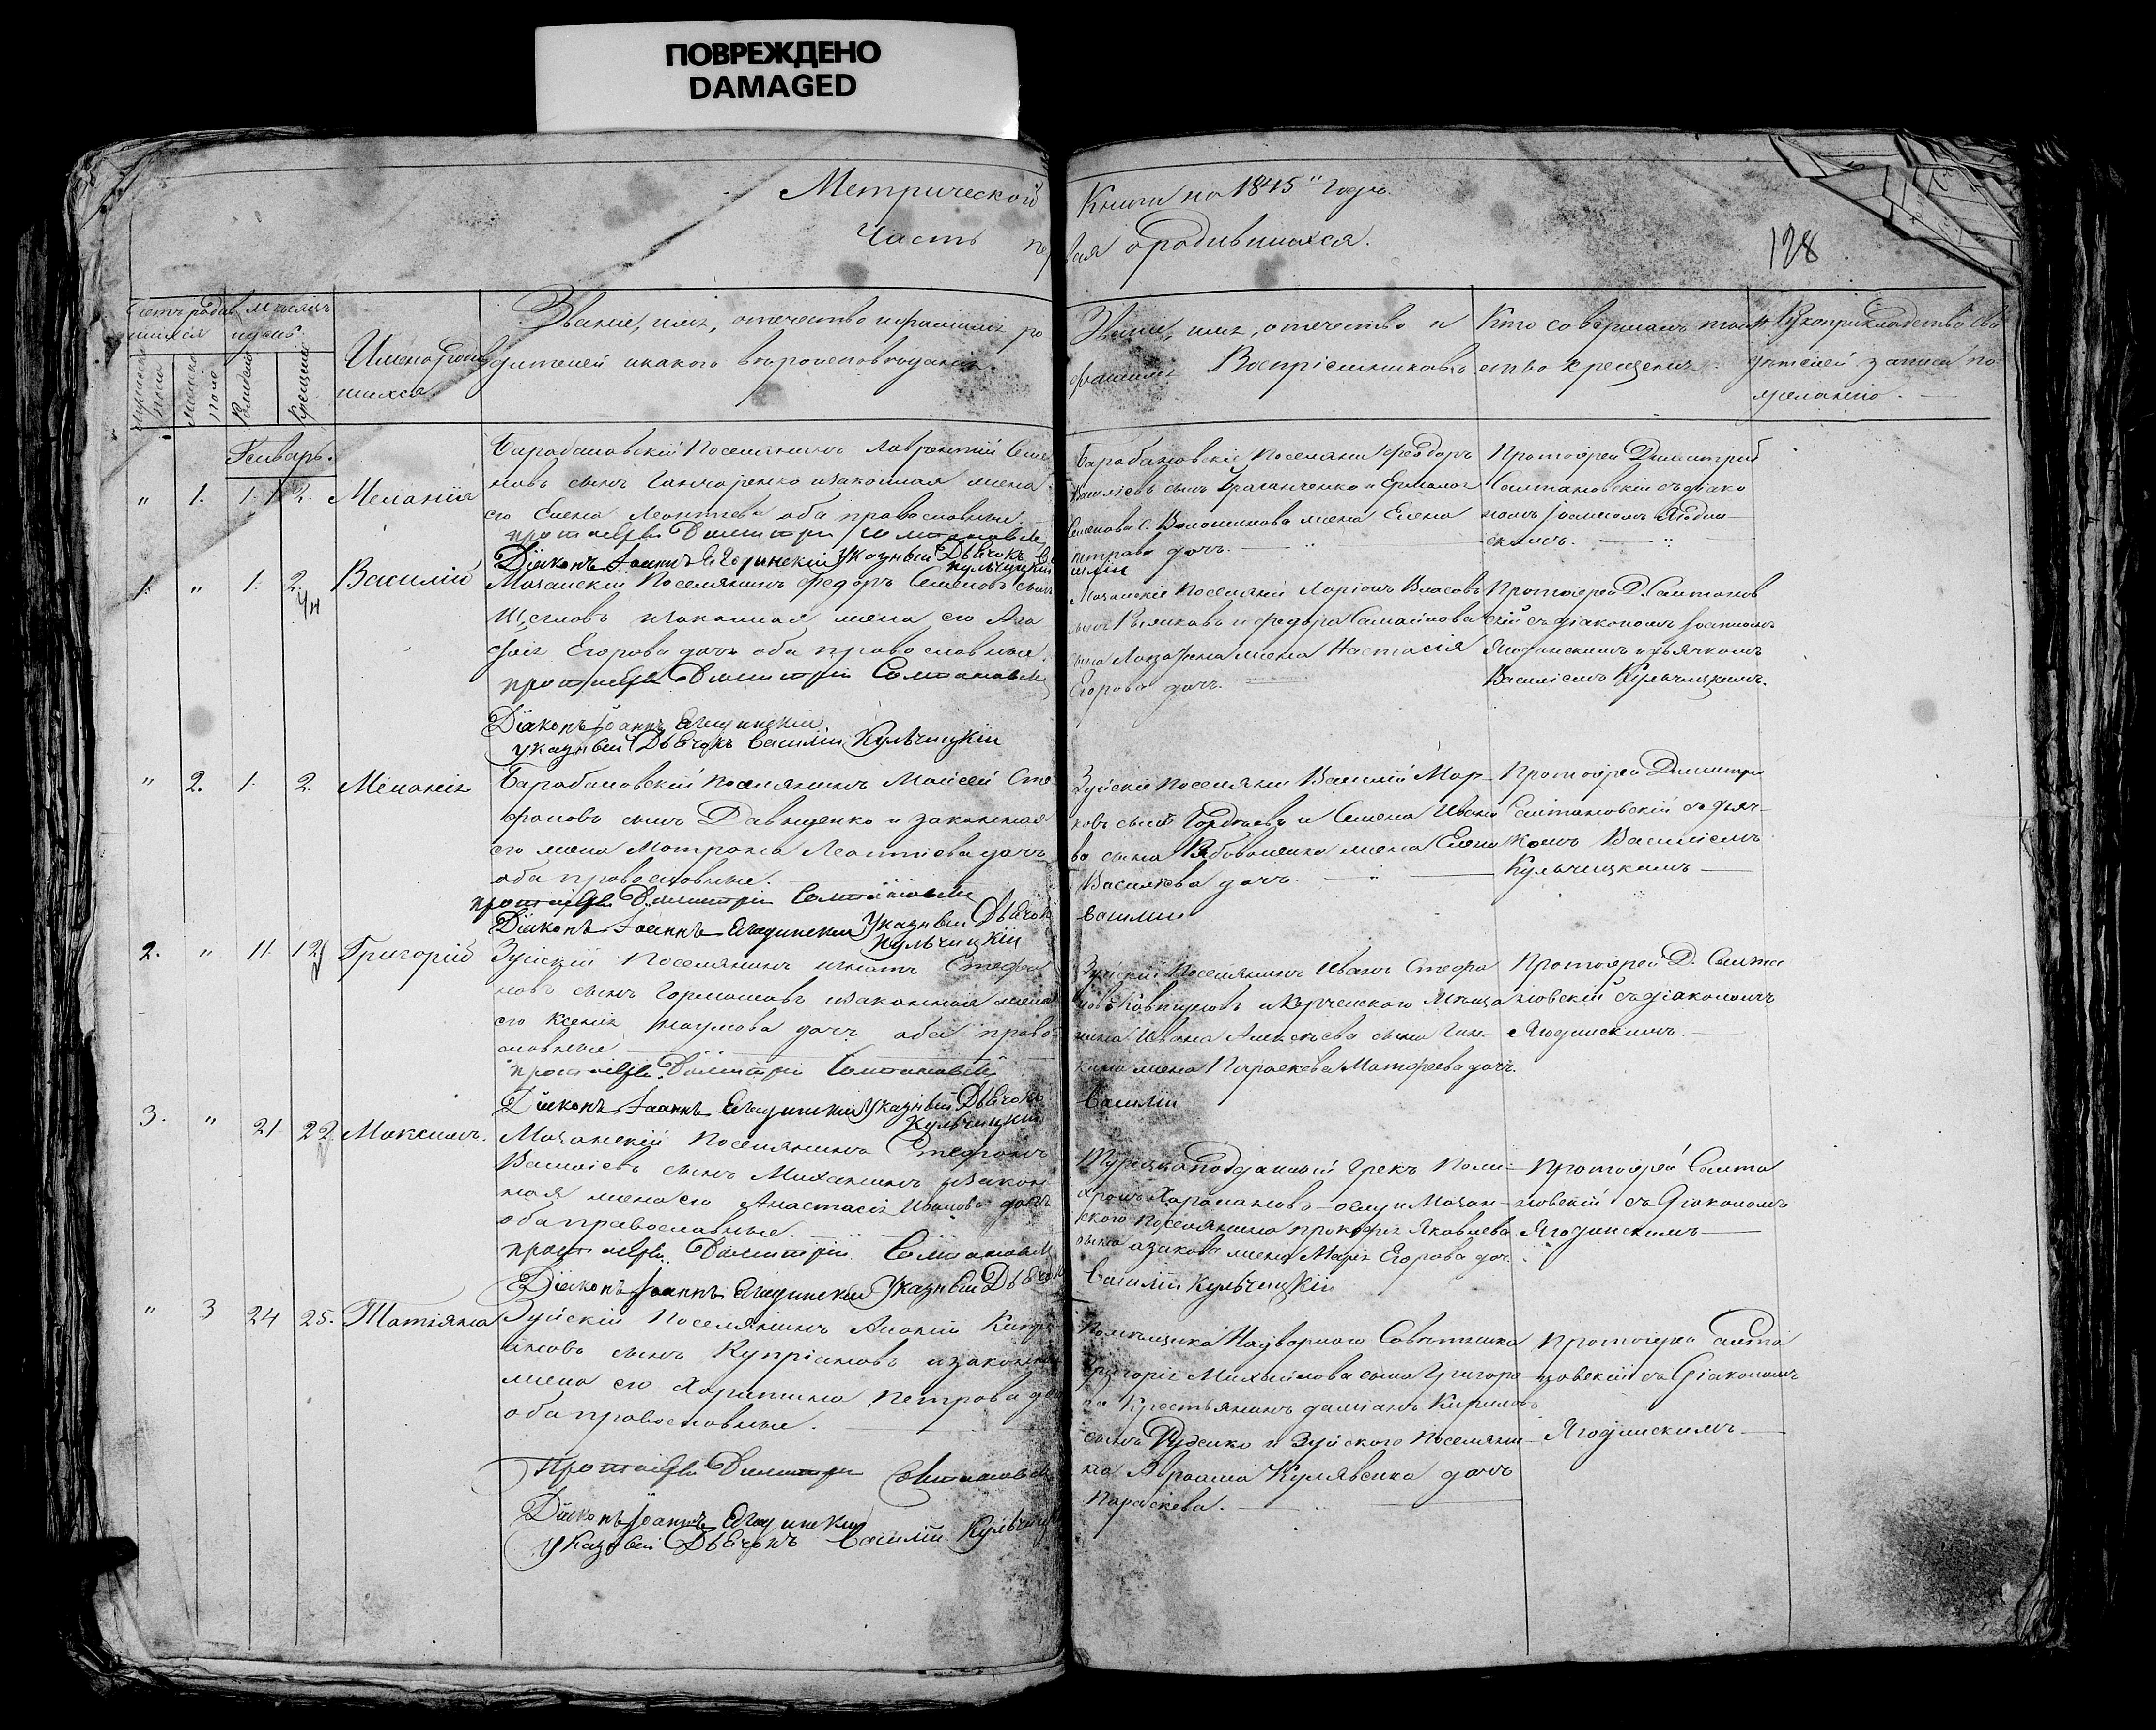 ПОВРЕЖДЕНО
DAMAGED
Метрической Книги на 1845" Годъ.
Часть первая о родившихся.
128
Счетъ родив
шихся
Мѣсяцъ
и день
мужеска
пола
женска
пола
Рожденія
Крещенія
Имена родив
шихся.
Званіе, имя, отечество и фамилія ро
дителей и какого вѣроисповѣданія.
Званіе, имя, отечество и
фамилія Воспріемниковъ
Кто совершалъ таин
ство крещенія.
Рукоприкладство сви
дѣтелей записи по
желанію.
Январь.
" 1. 1. 2. Меланія
Барабановскій Поселянинъ Лаврентій Семе
новъ сынъ Гончаренко и законная жена
его Елена Леонтіева оба православные.
протоіерей Димитрій Солтановскій
Діаконъ Іоаннъ Ягодинскій Указный Дьячокъ Василій
Кульчицкій
Барабановскіе Поселяне Феодоръ
Василіевъ сынъ и Ермолая
Семенова с. жена Елена
Петрова дочь.
Протоіерей Димитрій
Солтановскій съ діако
номъ Іоанномъ Ягодин
скимъ.
1. " 1. 2. Василій
Мазанскій Поселянинъ Федоръ Семеновъ сынъ
Щегловъ и законная жена его Ага
фія Егорова дочь оба православные.
протоіерей Димитрій Солтановскій
Діаконъ Іоаннъ Ягодинскій
указный Дьячокъ Василій Кульчицкій
Мазанскіе Поселяне Ларіонъ Власовъ
сынъ и Федора Самойлова
сына жена Настасія
Егорова дочь.
Протоіерей Д. Солтанов
скій съ діакономъ Іоанномъ
Ягодинскимъ и дьячкомъ
Василіемъ Кульчицкимъ.
" 2. 1. 2. Меланія
Барабановскій Поселянинъ Моисей Сте
фановъ сынъ Давыденко и законная
его жена Матрона Леонтіева дочь
оба православные.
протоіерей Димитрій Солтановскій
Діаконъ Іоаннъ Ягодинскій Указный Дьячокъ Василій
Кульчицкій
Зуйскіе Поселяне Василій Мар
ковъ сынъ и Семена Ивано
ва сына жена Елена
Василіева дочь.
Протоіерей Димитрій
Солтановскій съ дьяч
комъ Василіемъ
Кульчицкимъ
2. " 11. 12 Григорій
Зуйскій Поселянинъ Игнатъ Стефа
новъ сынъ и законная жена
его Ксенія Наумова дочь оба право
славные
протоіерей Димитрій Солтановскій
Діаконъ Іоаннъ Ягодинскій Указный Дьячокъ Василій
Кульчицкій
Зуйскій Поселянинъ Иванъ Стефа
новъ и Керченскаго Мѣща
нина Ивана Алексѣева сына
жена Параскева Матфеева дочь.
Протоіерей Д. Солта
новскій съ діакономъ
Ягодинскимъ.
3. " 21 22. Максимъ.
Мазанскій Поселянинъ Стефанъ
Василіевъ сынъ и закон
ная жена его Анастасія Иванова дочь
оба православные.
протоіерей Димитрій Солтановскій
Діаконъ Іоаннъ Ягодинскій Указный Дьячокъ
Василій Кульчицкій
Турецкоподданный Грекъ Поли
хронъ и Мазан
скаго Поселянина Прокофія Яковлева
сына Казакова жена Марія Егорова доч.
Протоіерей Солта
новскій съ Діакономъ
Ягодинскимъ
" 3 24 25. Татіяна
Зуйскій Поселянинъ Ананій Купрі
ановъ сынъ Купріановъ и законная
жена его Харитина Петрова дочь
оба православные.
Протоіерей Димитрій Солтановскій
Діаконъ Іоаннъ Ягодинскій
указный Дьячокъ Василій Кульчицкій
Помѣщика Надворнаго Совѣтника
Григорія Михайлова сына Григоро
ва Крестьянинъ Даміанъ Кириловъ
сынъ Руденко и Зуйского Поселяни
на Авраама дочь
Параскева.
Протоіерей Солта
новскій съ Діакономъ
Ягодинскимъ